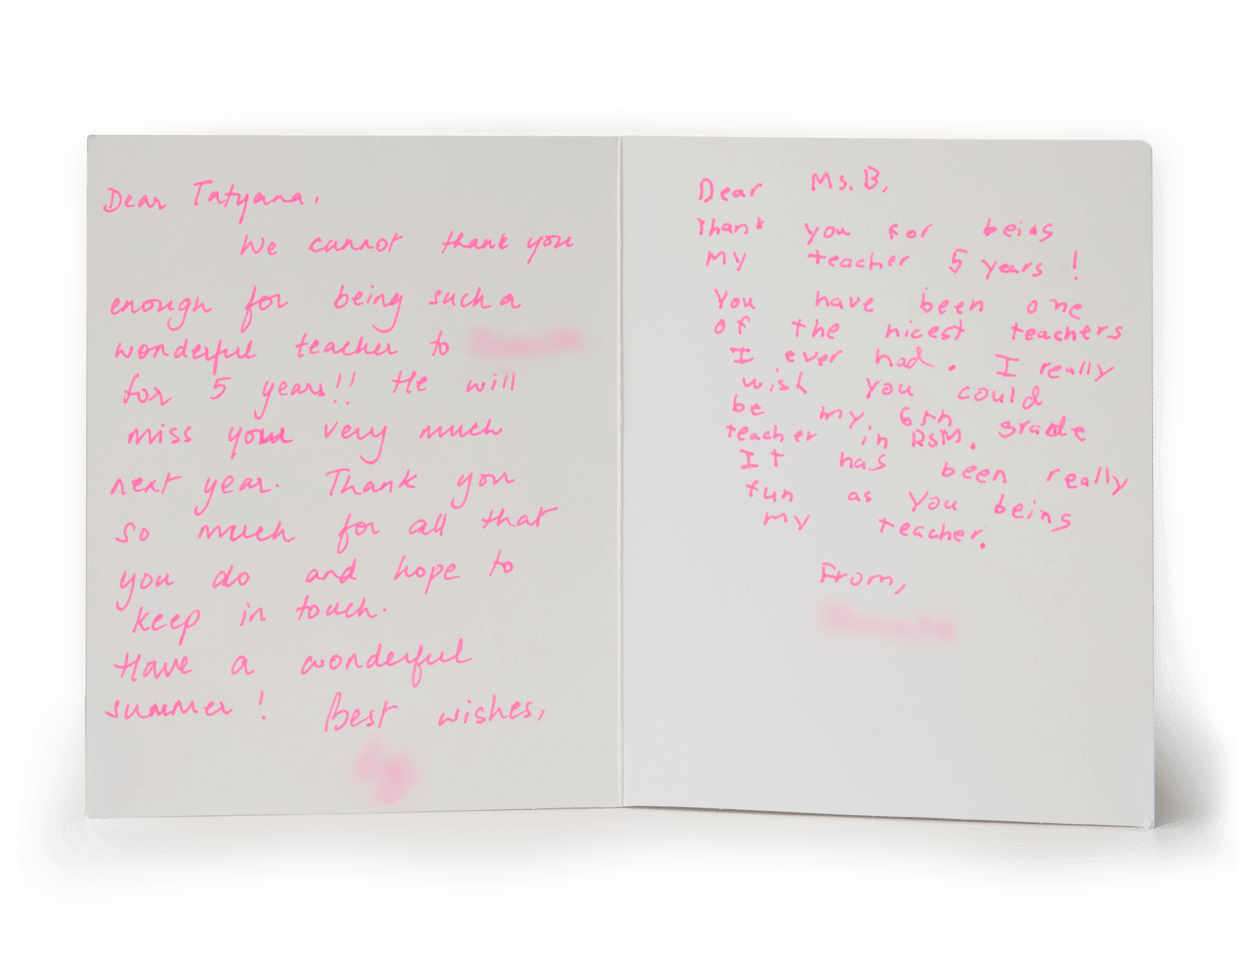 Dear Tatyana.
We cannot thank you
enough for being such a
wonderful teacher to
for 5 years!! He will
miss your very much
next year. Thank you
so much for all that
you do and hope to
keep in touch.
Have a wonderful
summer! Best wishes,
Dear Ms. B,
Thank you for being
my teacher 5 years!
You have been one
of the nicest teachers
I ever had. I really
wish you could
be my 6th grade
teacher in RSM.
It has been really
fun as you being
my teacher.
From,